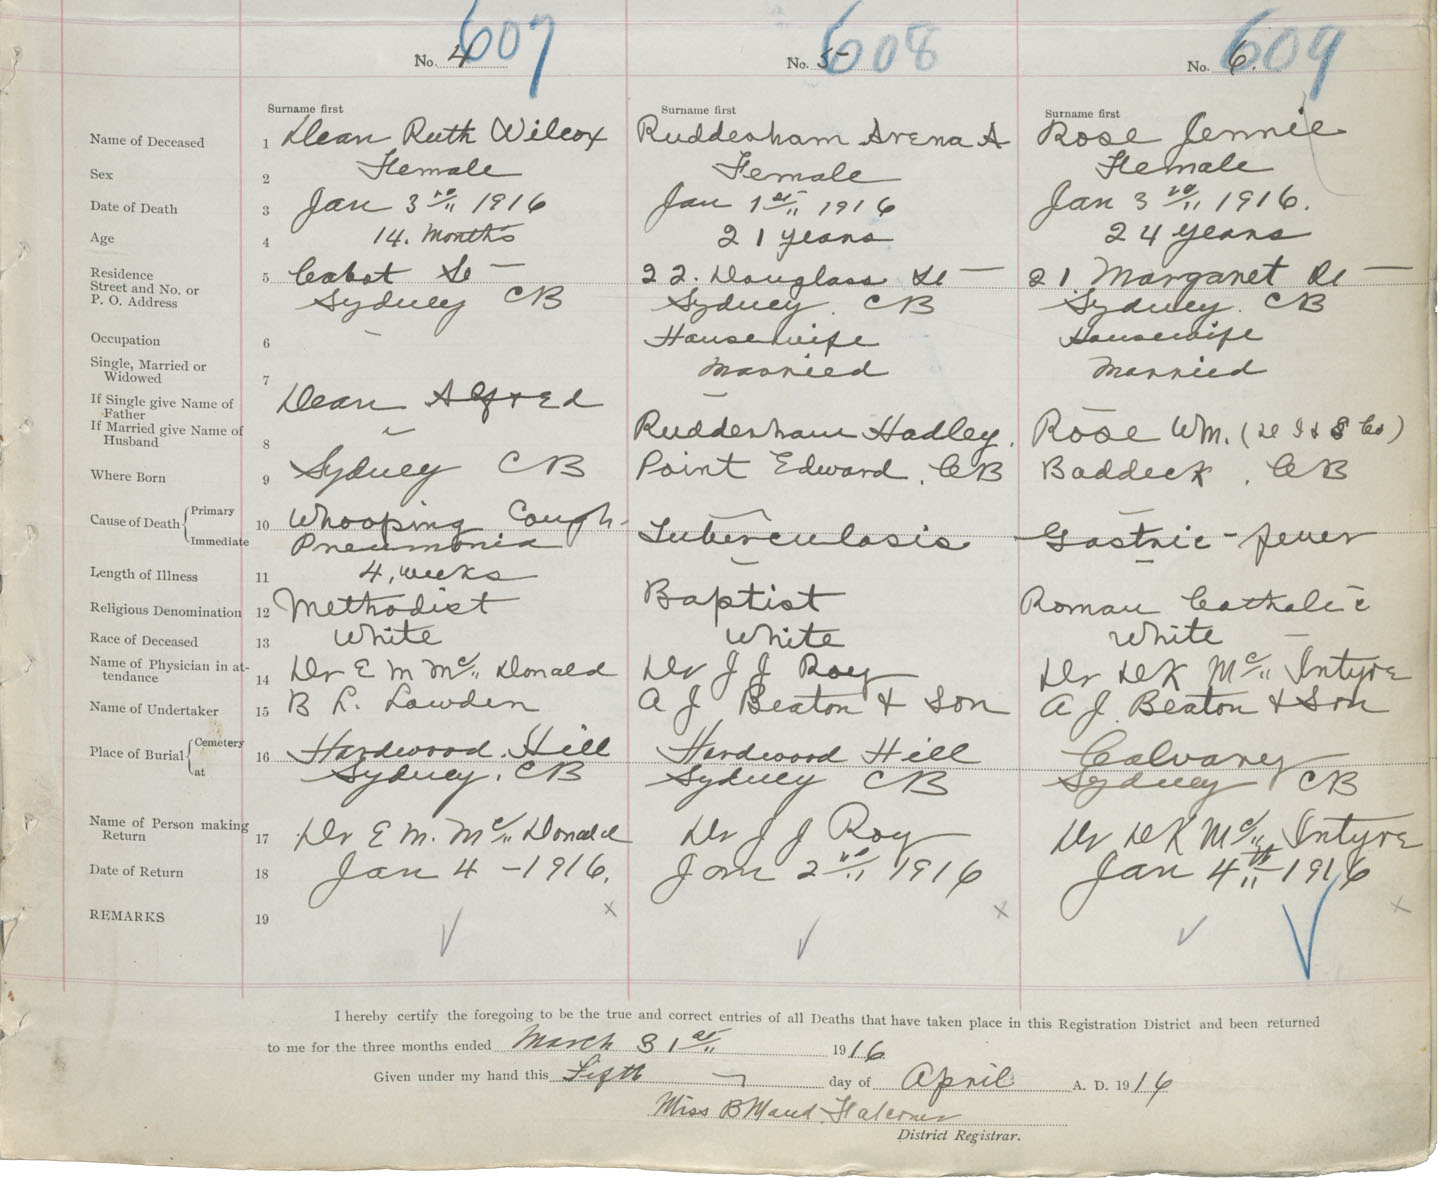 607 608 609
No. 4 No. 5 No. 6
Surname first Surname first Surname first
Name of Deceased 1 Dean Ruth Wilcox Ruddenham Arena A Rose Jennie
Sex 2 Female Female Female
Date of Death 3 Jan 3rd 1916 Jan 1st 1916 Jan 3rd 1916.
Age 4 14. Months 21 years 24 years
Residence 5 Cabot St — 22. Douglass St — 21. Margaret St —
Street and No. or
P. O. Address Sydney CB Sydney. CB Sydney. CB
Occupation 6 – Housewife Housewife
Single, Married or
Widowed 7 Married Married
If Single give Name of
Father Dean Alfred – –
If Married give Name of
Husband 8 – Ruddenham Hadley. Rose Wm. (D I & S Co)
Where Born 9 Sydney CB Point Edward. CB Baddeck. CB
Cause of Death { Primary 10 Whooping Cough – –
Immediate Pneumonia Tuberculosis Gastric-fever
Length of Illness 11 4. weeks – –
Religious Denomination 12 Methodist Baptist Roman Catholic
Race of Deceased 13 White White White –
Name of Physician in at-
tendance 14 Dr E M Mc Donald Dr J J Roy Dr D K Mc Intyre
Name of Undertaker 15 B L. Lowden A J Beaton & Son A J. Beaton & Son
Place of Burial { Cemetery 16 Hardwood Hill Hardwood Hill Calvary
at Sydney. CB Sydney CB Sydney CB
Name of Person making
Return 17 Dr E M. Mc Donald Dr J J Roy Dr D K Mc Intyre
Date of Return 18 Jan 4 – 1916. Jan 2nd 1916 Jan 4th – 1916
REMARKS 19
I hereby certify the foregoing to be the true and correct entries of all Deaths that have taken place in this Registration District and been returned
to me for the three months ended March 31st 1916
Given under my hand this Fifth day of April A. D. 1916
Miss B Maud Falconer
District Registrar.